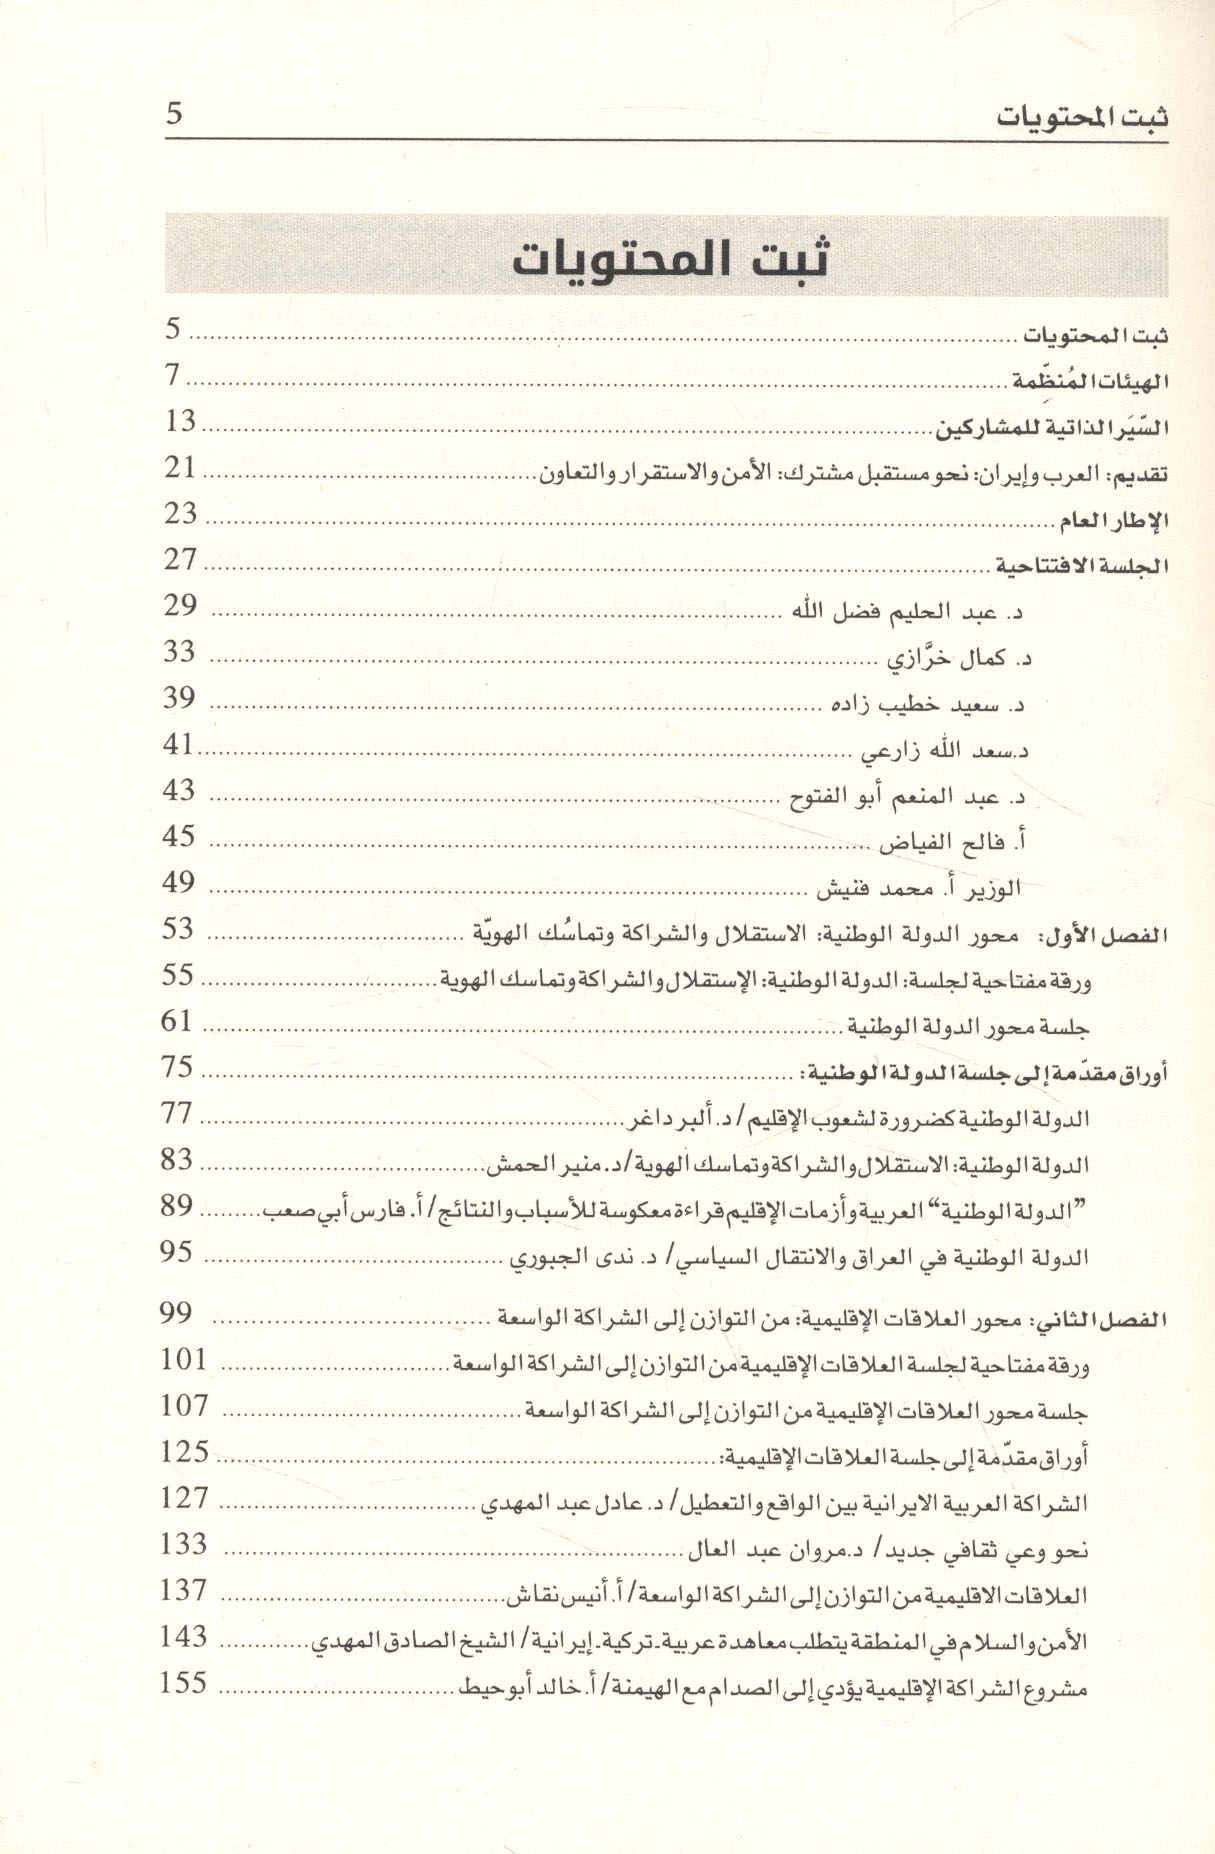 ثبت المحتويات 5
ثبت المحتويات
ثبت المحتويات 5
الهيئات المُنظِّمة 7
السِّيَر الذاتية للمشاركين 13
تقديم: العرب وإيران: نحو مستقبل مشترك: الأمن والاستقرار والتعاون 21
الإطار العام 23
الجلسة الافتتاحية 27
د. عبد الحليم فضل الله 29
د. كمال خرَّازي 33
د. سعيد خطيب زاده 39
د.سعد الله زارعي 41
د. عبد المنعم أبو الفتوح 43
أ. فالح الفياض 45
الوزير أ. محمد فنيش 49
الفصل الأول: محور الدولة الوطنية: الاستقلال والشراكة وتماسُك الهويّة 53
ورقة مفتاحية لجلسة: الدولة الوطنية: الإستقلال والشراكة وتماسك الهوية 55
جلسة محور الدولة الوطنية 61
أوراق مقدّمة إلى جلسة الدولة الوطنية: 75
الدولة الوطنية كضرورة لشعوب الإقليم/ د. ألبر داغر 77
الدولة الوطنية: الاستقلال والشراكة وتماسك الهوية/د. منير الحمش 83
”الدولة الوطنية“ العربية وأزمات الإقليم قراءة معكوسة للأسباب والنتائج/ أ. فارس أبي صعب 89
الدولة الوطنية في العراق والانتقال السياسي/ د. ندى الجبوري 95
الفصل الثاني: محور العلاقات الإقليمية: من التوازن إلى الشراكة الواسعة 99
ورقة مفتاحية لجلسة العلاقات الإقليمية من التوازن إلى الشراكة الواسعة 101
جلسة محور العلاقات الإقليمية من التوازن إلى الشراكة الواسعة 107
أوراق مقدّمة إلى جلسة العلاقات الإقليمية: 125
الشراكة العربية الايرانية بين الواقع والتعطيل/ د. عادل عبد المهدي 127
نحو وعي ثقافي جديد/ د.مروان عبد العال 133
العلاقات الاقليمية من التوازن إلى الشراكة الواسعة/ أ. أنيس نقاش 137
الأمن والسلام في المنطقة يتطلب معاهدة عربية-تركية-إيرانية/ الشيخ الصادق المهدي 143
مشروع الشراكة الإقليمية يؤدي إلى الصدام مع الهيمنة/ أ. خالد أبو حيط 155